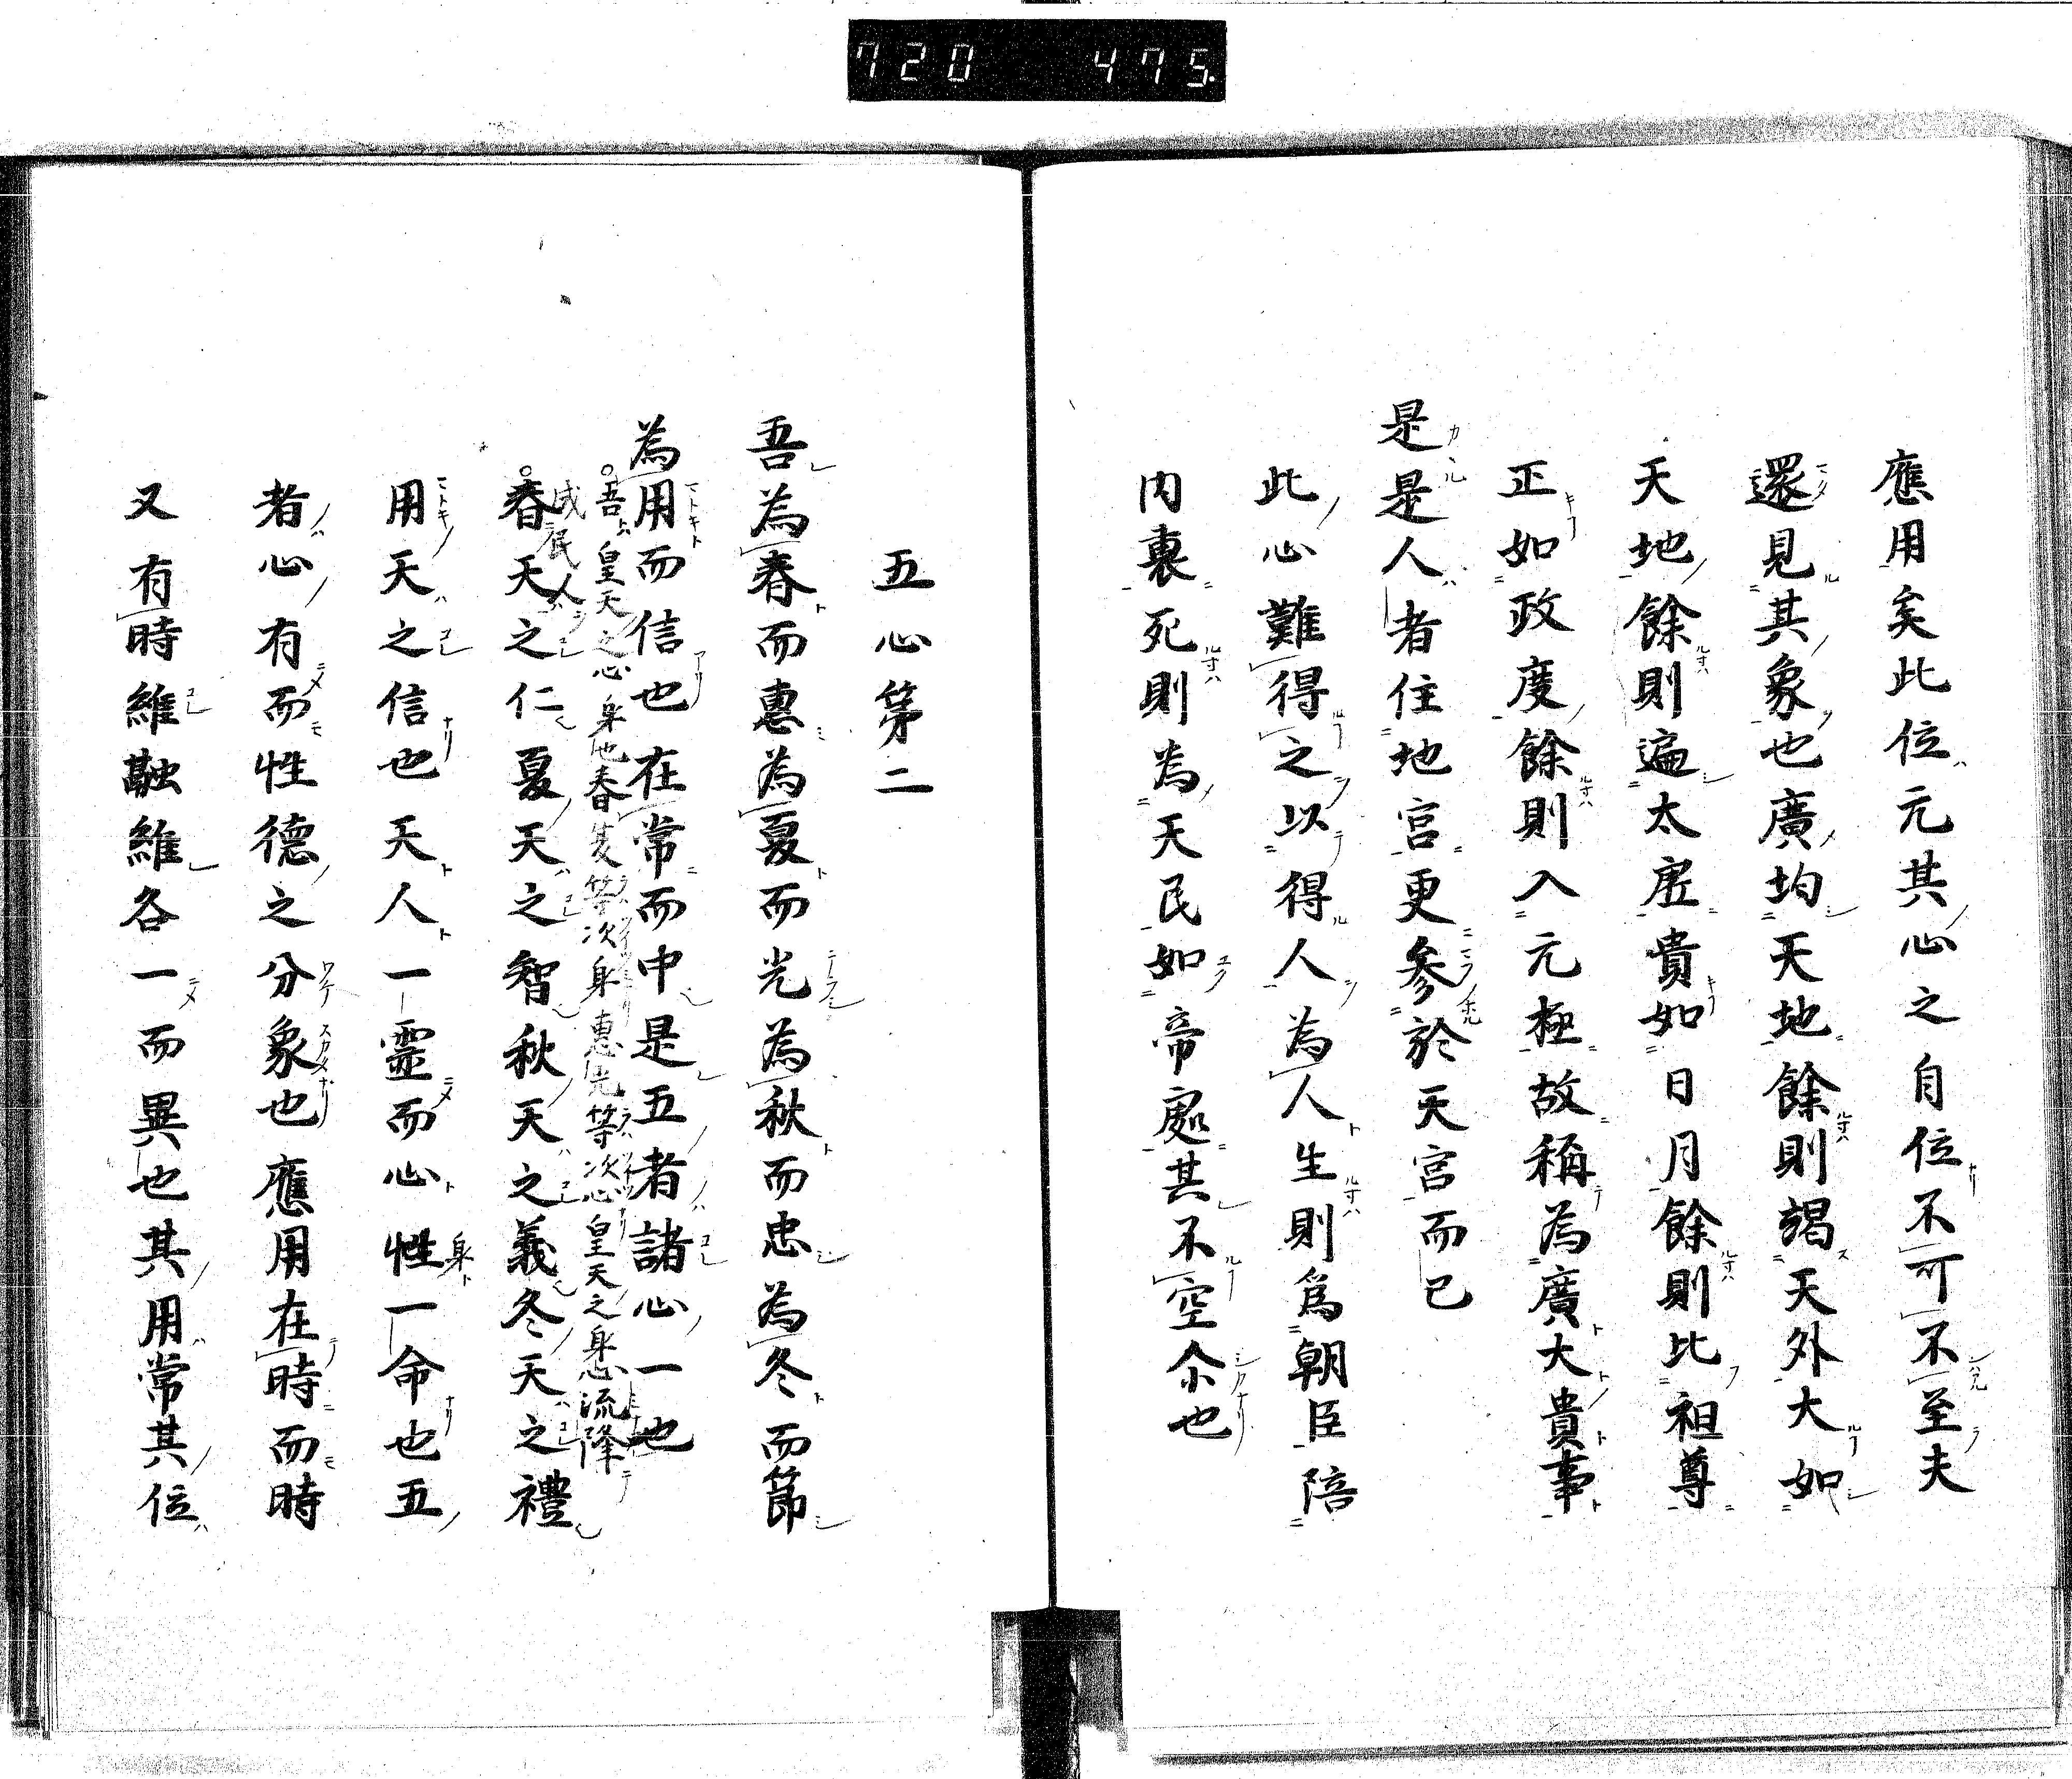 720 475
應用矣此位元其心之自位不可不至夫
還見其象也廣均天地餘則竭天外大如
天地餘則遍太虛貴如日月餘則比祖尊
正如政度餘則入元極故稱為廣大貴事
是是人者住地宮更參於天宮而已
此心難得之以得人為人生則爲朝臣陪
內裏死則為天民如帝處其不空尒也
五心第二
吾為春而惠為夏而光為秋而忠為冬而節
為用而信也在常而中是五者諸心一也
吾皇天之心身也春夏等次身惠光等次心皇天之身心流降
成民人
春天之仁夏天之智秋天之義冬天之禮
用天之信也天人一靈而心性一命也五
者心有而性德之分象也應用在時而時
又有時維融維各一而異也其用常其位